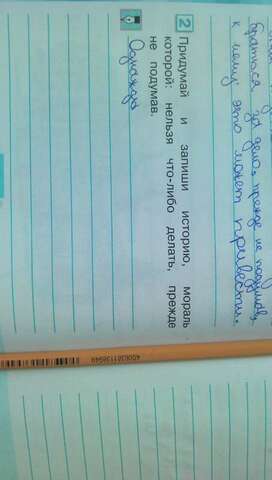 браться за дело, прежде не подумав,
к чему это может привести.
2 Придумай и запиши историю, мораль
которой: нельзя что-либо делать, прежде
не подумав.
Однажды